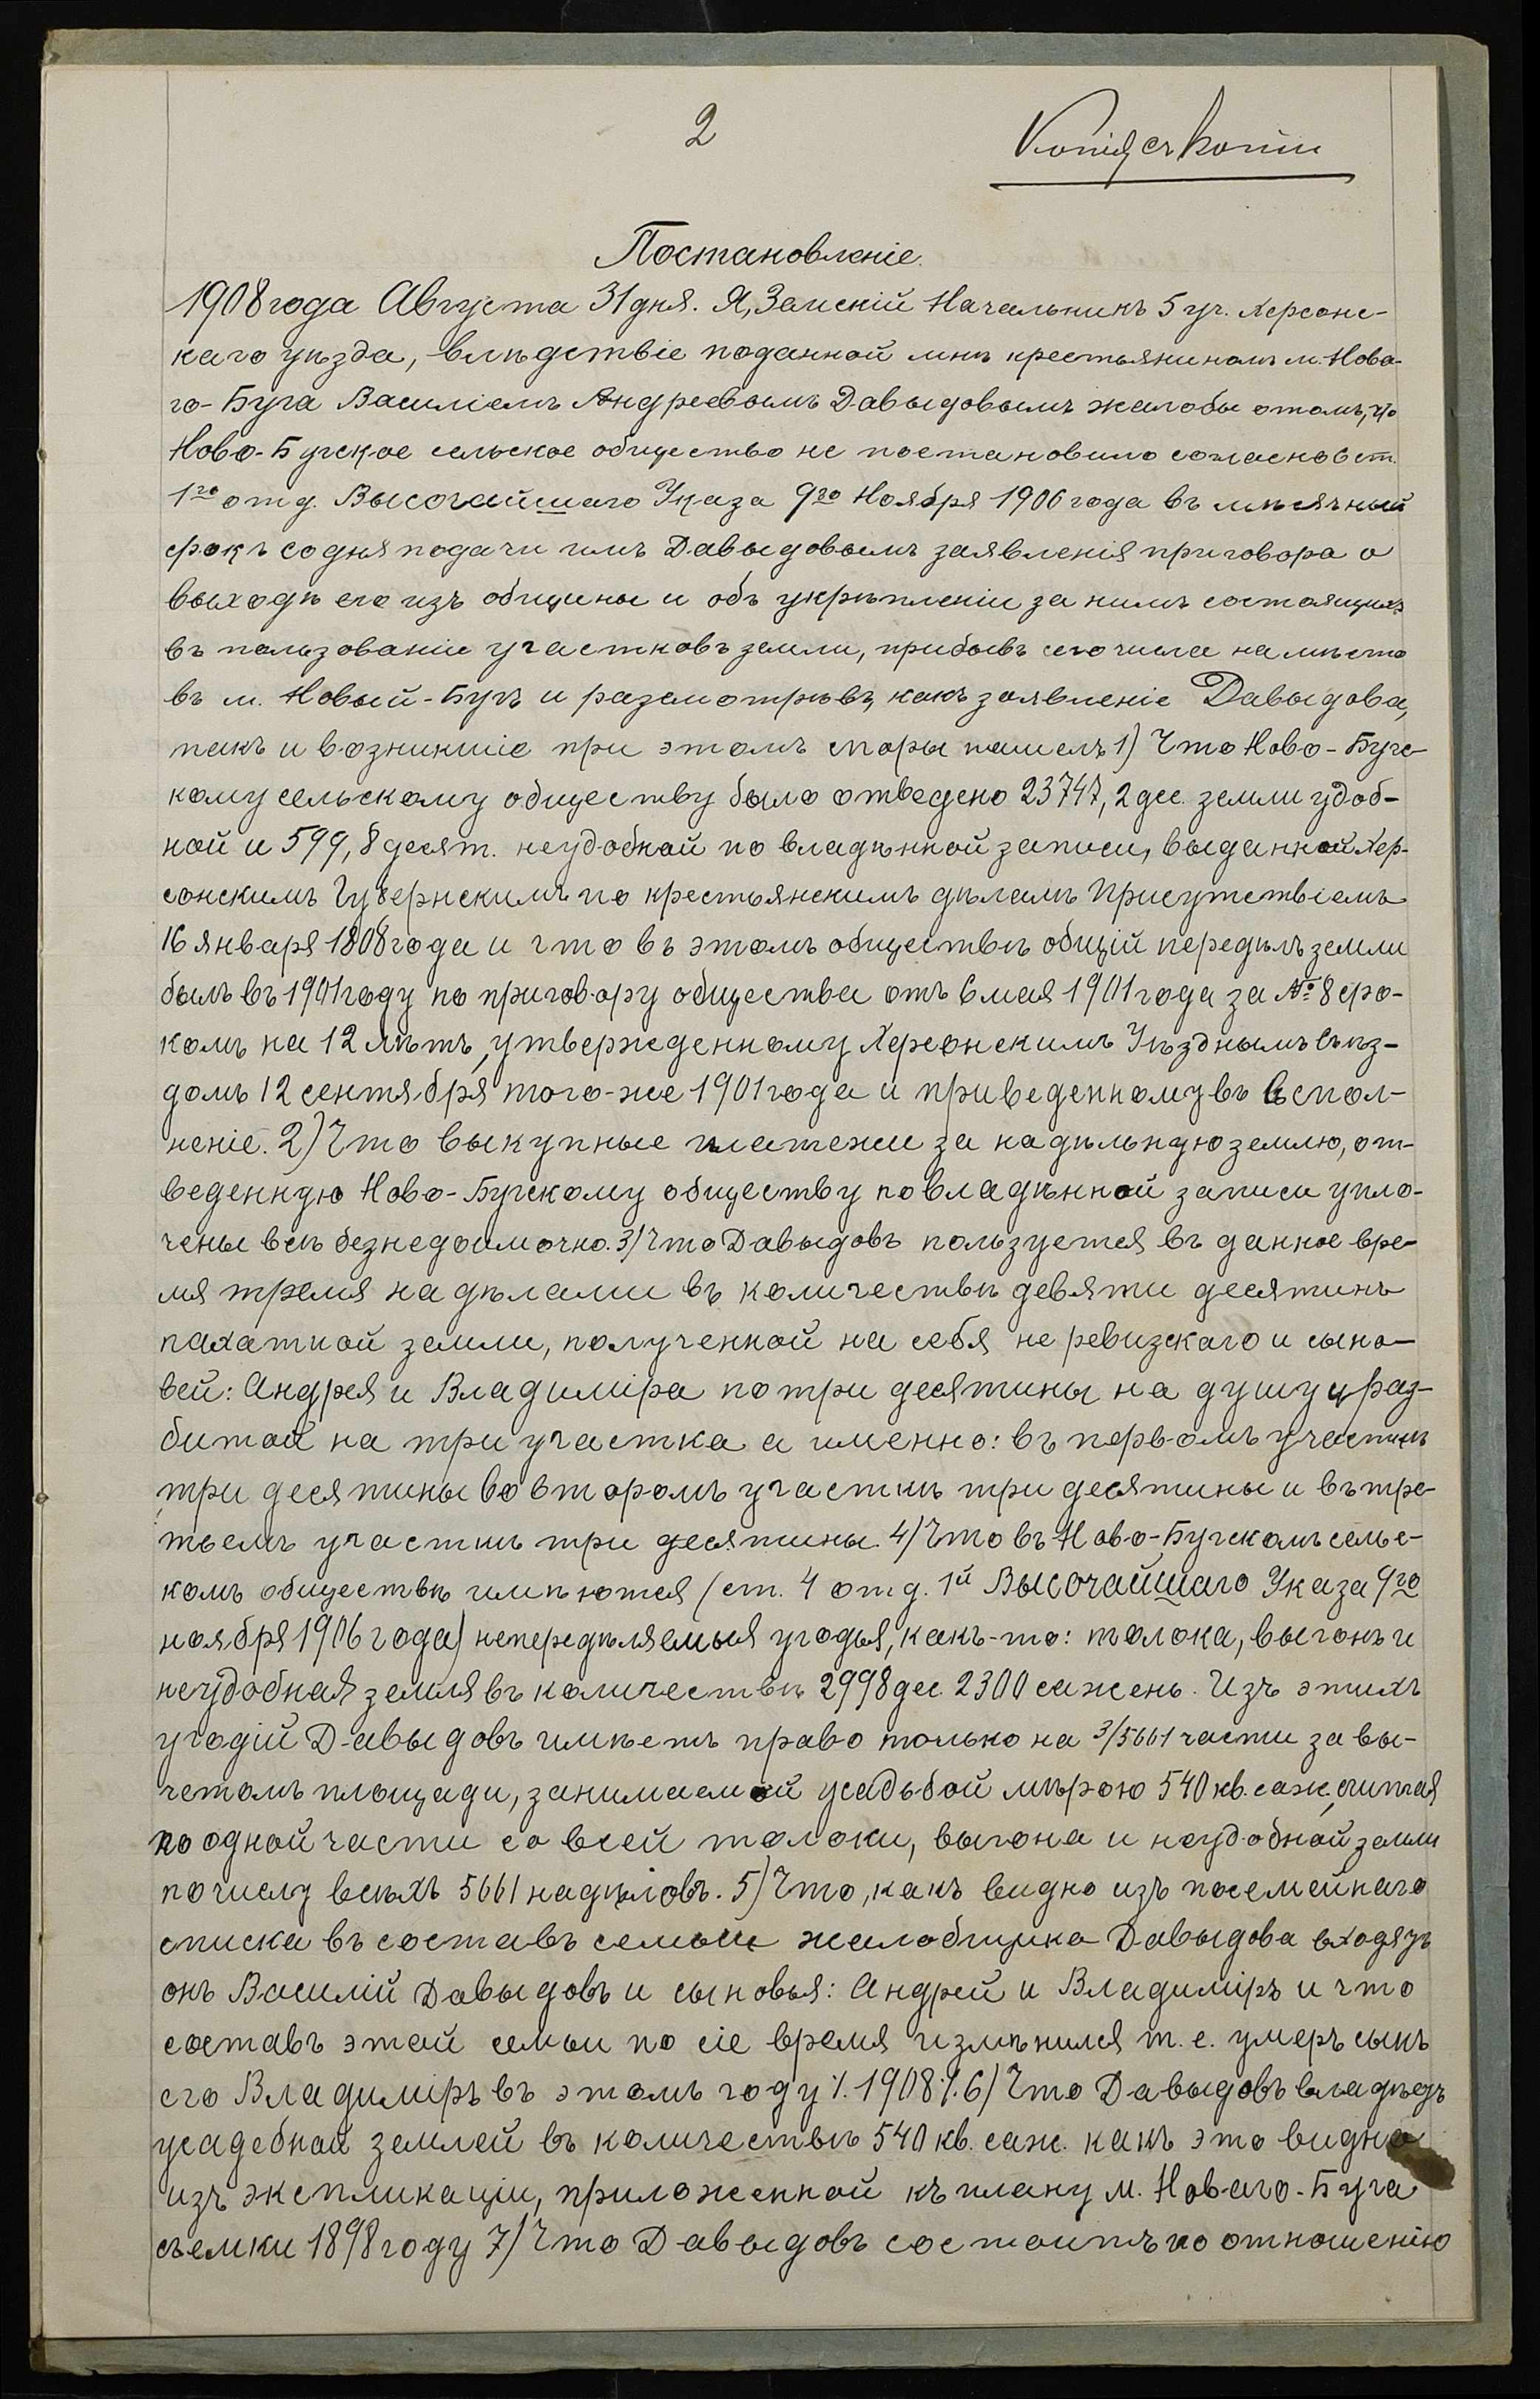 2
Копія съ копіи
Постановленіе.
1908 года Августа 31 дня. Я, Земскій Начальникъ 5 уч. Херсонс-
каго уѣзда, вслѣдствіе поданной мнѣ крестьяниномъ м. Нова-
го-Буга Василіемъ Андреевымъ Давыдовымъ жалобы о томъ, что
Ново-Бугское сельское общество не постановило согласно 6 ст.
1го отд. Высочайшаго Указа 9го Ноября 1906 года въ мѣсячный
срокъ со дня подачи имъ Давыдовымъ заявленія приговора о
выходѣ его изъ общины и объ укрѣпленіи за нимъ состоящихъ
въ пользованіи участковъ земли, прибывъ сего числа на мѣсто
въ м. Новый-Бугъ и разсмотрѣвъ, какъ заявленіе Давыдова,
такъ и возникшіе при этомъ споры нашелъ 1) Что Ново-Бугс-
кому сельскому обществу было отведено 23747,2 дес. земли удоб-
ной и 599,8 десят. неудобной по владѣнной записи, выданной Хер-
сонскимъ Губернскимъ по крестьянскимъ дѣламъ Присутствіемъ
16 января 1808 года и что въ этомъ обществѣ общій передѣлъ земли
былъ въ 1901 году по приговору общества отъ 6 мая 1901 года за № 8 сро-
комъ на 12 лѣтъ, утвержденному Херсонскимъ Уѣзднымъ Съѣз-
домъ 12 сентября того-же 1901 года и приведенному въ испол-
неніе. 2) Что выкупные платежи за надѣльную землю, от-
веденную Ново-Бугскому обществу по владѣнной записи упло-
чены всѣ безнедоимочно. 3) Что Давыдовъ пользуется въ данное вре-
мя тремя надѣлами въ количествѣ девяти десятинъ
пахатной земли, полученной на себя не ревизскаго и сыно-
вей: Андрея и Владиміра по три десятины на душу и раз-
битой на три участка а именно: въ первомъ участкѣ
три десятины во второмъ участкѣ три десятины и въ тре-
тьемъ участкѣ три десятины. 4) Что въ Ново-Бугскомъ сельс-
комъ обществѣ имѣются (ст. 4 отд. 1й Высочайшаго Указа 9го
ноября 1906 года) непередѣляемыя угодья, какъ-то: толока, выгонъ и
неудобная земля въ количествѣ 2998 дес. 2300 сажень. Изъ этихъ
угодій Давыдовъ имѣетъ право только на 3/5661 части за вы-
четомъ площади, занимаемой усадьбой мѣрою 540 кв. саж., считая
по одной части со всей толоки, выгона и неудобной земли
по числу всѣхъ 5661 надѣловъ. 5) Что, какъ видно изъ посемейнаго
списка въ составъ семьи жалобщика Давыдова входятъ
онъ Василій Давыдовъ и сыновья: Андрей и Владиміръ и что
составъ этой семьи по сіе время измѣнился т. е. умеръ сынъ
его Владиміръ въ этомъ году /. 1908 /. 6) Что Давыдовъ владѣетъ
усадебной землей въ количествѣ 540 кв. саж. какъ это видно
изъ экспликаціи, приложенной къ плану м. Новаго-Буга
съемки 1898 году 7) Что Давыдовъ состоитъ по отношенію